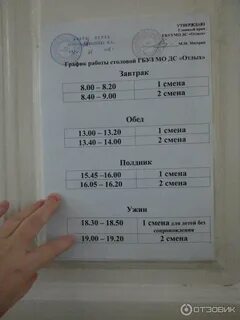 УТВЕРЖДАЮ
Главный врач
ГБУЗ МО ДС «Отдых»
График работы столовой ГБУЗ МО ДС «Отдых»
Завтрак
8.00 – 8.20 1 смена
8.40 – 9.00 2 смена
Обед
13.00 – 13.20 1 смена
13.40 – 14.00 2 смена
Полдник
15.45 –16.00 1 смена
16.05 – 16.20 2 смена
Ужин
18.30 – 18.50 1 смена для детей без
сопровождения
19.00 – 19.20 2 смена
ОТЗОВИК